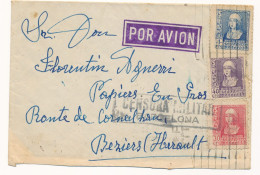 Sr. Don
POR AVION
Florentin Agnerri
Papiers En Gros
CENSURA MILITAR
Route de Corneilhan
Beziers (Herault)